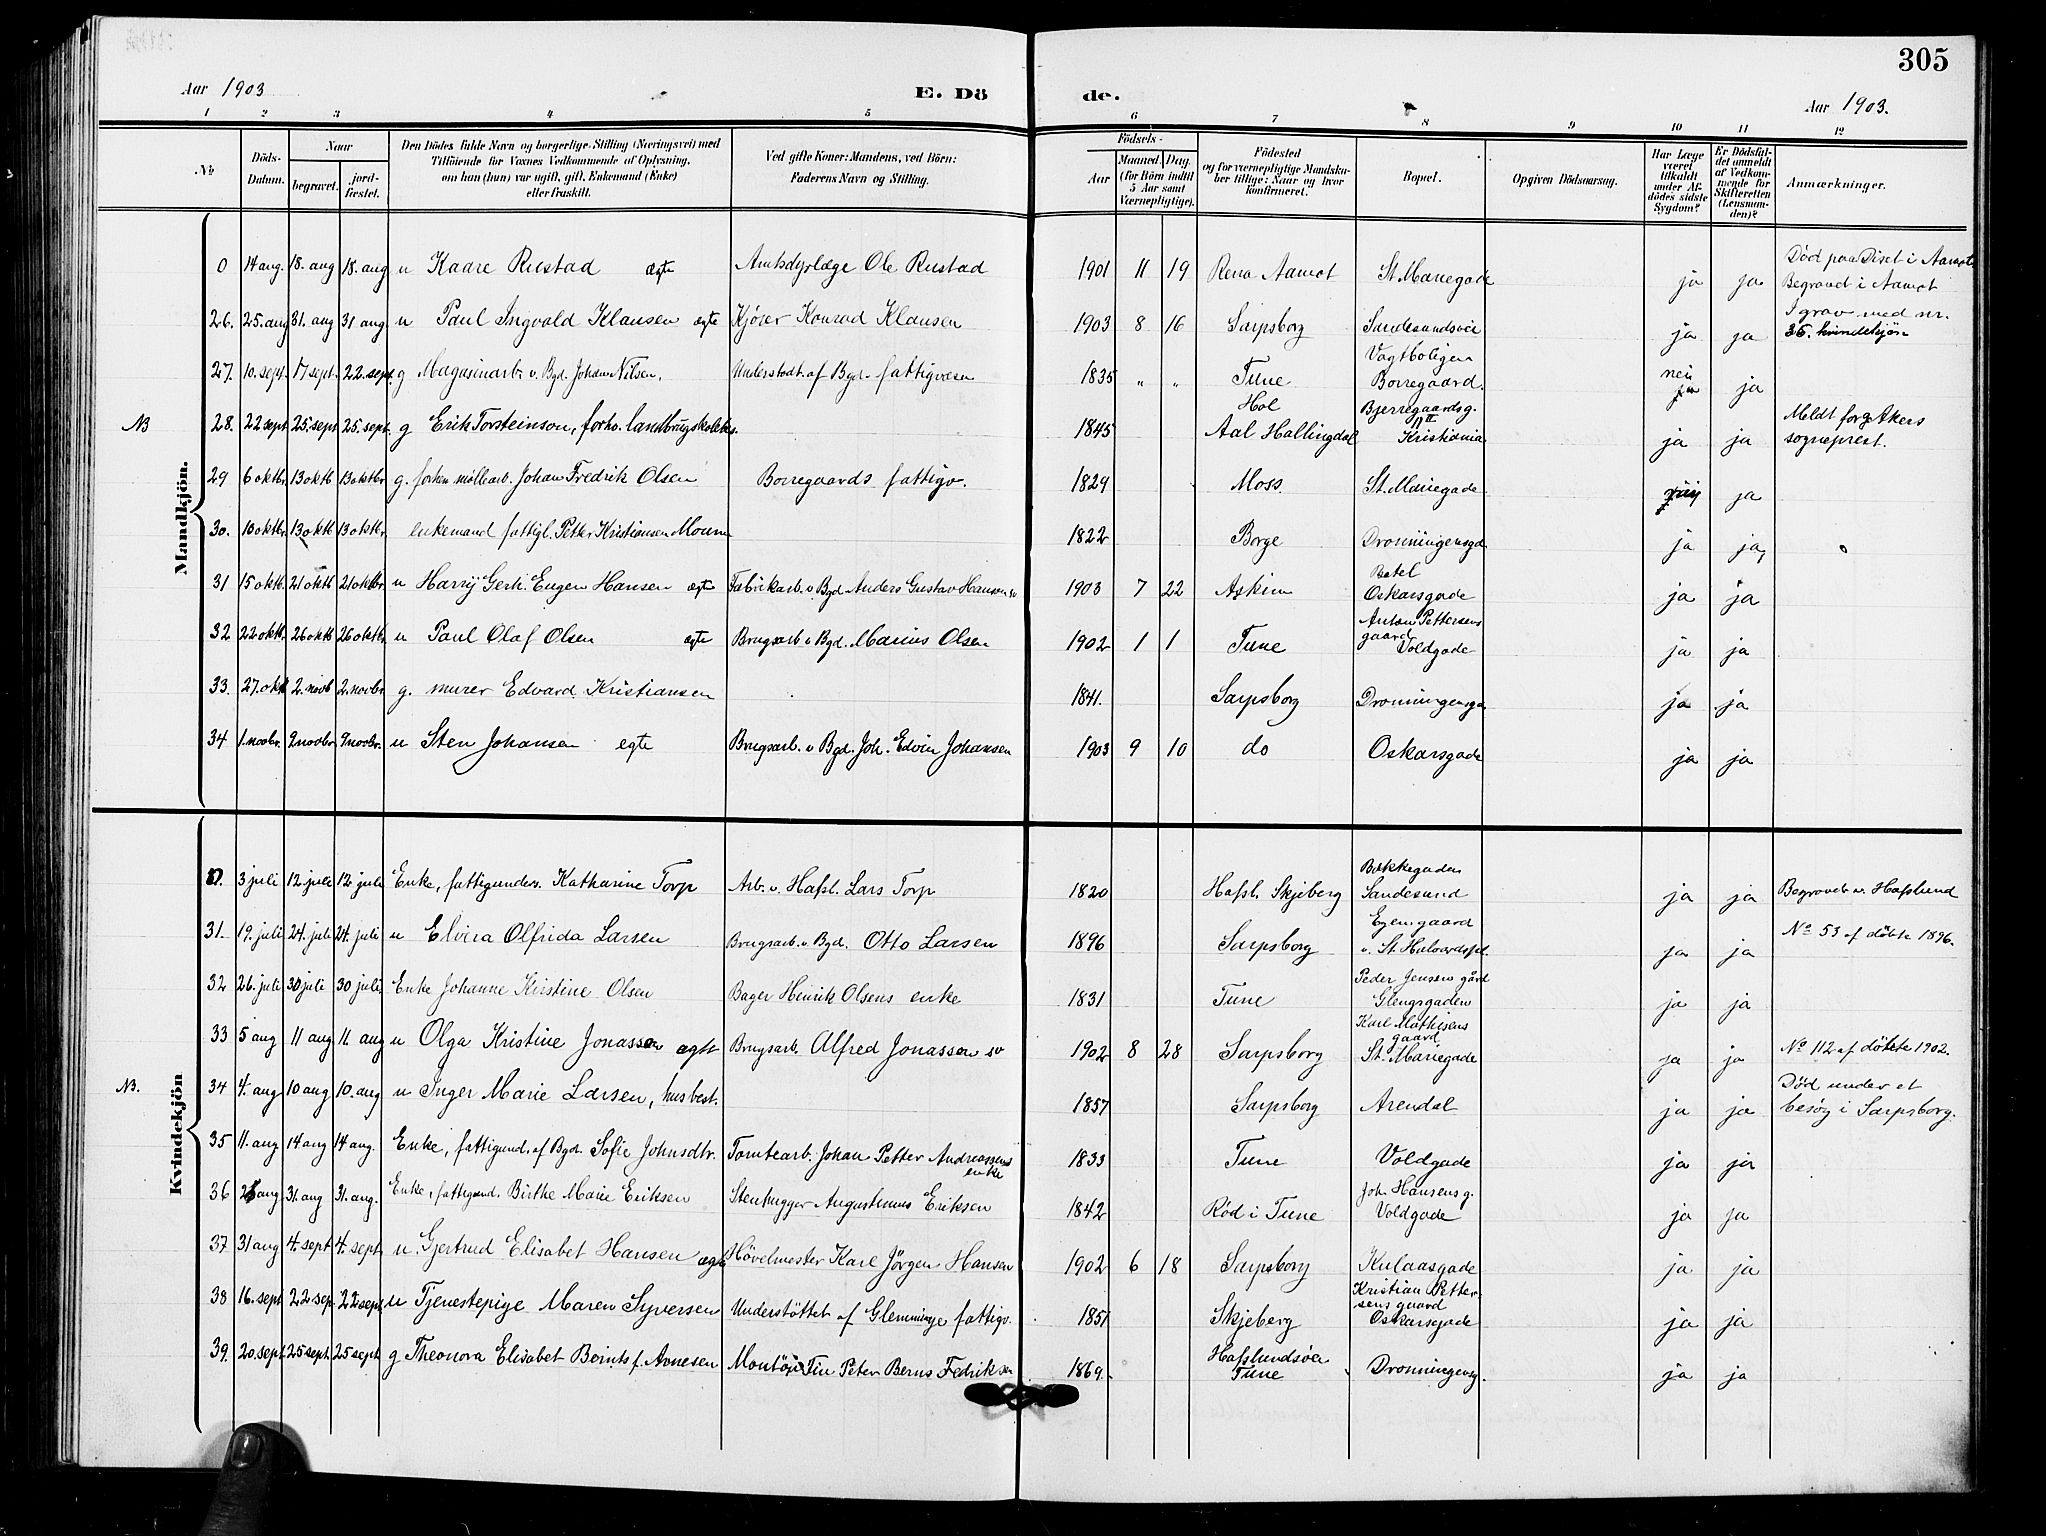 305
Aar 1903
E. Dö de.
Aar 1903.
1 2 3 4 5 6 7 8 9 10 11 12
No
Döds-Datum.
Naar
begravet.
jord-fæstet.
Den Dödes fulde Navn og borgerlige Stilling (Næringsvei) med
Tilföiende for Voxnes Vedkommende af Oplysning,
om han (hun) var ugift, gift, Enkemand (Enke)
eller fraskilt.
Ved gifte Koner: Mandens, ved Börn:
Faderens Navn og Stilling.
Födsels-
Aar
Maaned. Dag.
(for Börn indtil
5 Aar samt
Værnepligtige).
Födested
og for værnepligtige Mandska-
ber tillige: Naar og hvor
Konfirmeret.
Bopæl.
Opgiven Dödsaarsag.
Har Læge
været
tilkaldt
under Af-
dödes sidste
Sygdom?
Er Dödsfal-
det anmeldt
af Vedkom-
mende for
Skifteretten
(Lensman-
den)?
Anmærkninger.
Mandkjön.
0 14 aug. 18. aug 18. aug u Kaare Rustad ægte Amtsdyrlæge Ole Rustad 1901 11 19 Rena Aamot St. Mariegade ja ja Död paa Diset i Aamot Begravet i Aamot
26. 25. aug 31. aug 31 aug. u Paul Ingvald Klausen ægte Kjörer Konrad Klausen 1903 8 16 Sarpsborg Sandesundsvei ja ja I grav med nr. 35. kvindekjön
27. 10. sept. 17 sept. 22. sept. g Magasinarb. v. Bgd. Johan Nilsen, Understödt. af Bgd. fattigvæsen 1835 " " Tune Vagtboligen Borregaard. nei ja
NB 28. 22 sept 25. sept 25. sept. g Erik Torsteinson, forhv. landbrugskolebs. 1845 Hol Aal Hallingdal Bjerregaardsg. II Kristiania ja ja Meldt for Akers sogneprest.
29 6 oktbr. 13 oktb 13 oktbr. g. forhen möllearb. Johan Fredrik Olsen Borregaards fattigv. 1829 Moss. St. Mariegade ja
30. 10 oktbr. 13 oktb 13 oktbr. enkemand fattigl. Petter Kristiansen Moum 1822 Borge Dronningensgd ja ja,
31 15 oktb. 21 oktb 21 oktbr. u Harry Gerh. Eugen Hansen ægte Fabrikarb. v. Bgd. Anders Gustav Hansen 1903 7 22 Askim Oskarsgade ja ja
32 22 oktb. 26 oktb 26 oktb. u Paul Olaf Olsen ægte Brugsarb v Bgd. Marius Olsen 1902 1 1 Tune Anton Pettersens gaard Voldgade ja ja
33. 27. okt 2. novb 2. novbr. g. murer Edvard Kristiansen 1841. Sarpsborg Dronningensga ja ja
34 1. novbr. 9 novbr 9 novbr. u Sten Johansen egte Brugsarb. v Bgd. Joh. Edvin Johansen 1903 9 10 do Oskarsgade ja ja
Kvindekjön
0. 3 juli 12 juli 12 juli Enke, fattigunders. Katharine Torp Arb. v. Hafsl. Lars Torp 1820 Hafsl. Skjeberg Bakkegaden Sandesund ja ja Begravet v. Hafslund
31. 19. juli 24. juli 24. juli u Elvira Olfrida Larsen Brugsarb. v. Bgd. Otto Larsen 1896 Sarpsborg Egen gaard v. St. Halvardspl. ja ja No 53 af döbte 1896.
32 26. juli 30 juli 30 juli. Enke Johanne Kristine Olsen Bager Henrik Olsens enke 1831 Tune Peder Jensen gård Glengsgaden ja ja
33 5 aug 11 aug 11. aug u Olga Kristine Jonassen ægte Brugsarb. Alfred Jonassen sv 1902 8 28 Sarpsborg Karl Mathisens gaard St. Mariegade ja ja No 112 af döbte 1902.
NB. 34 4. aug 10 aug 10. aug u Inger Marie Larsen, husbest. 1857 Sarpsborg Arendal ja ja Död under et besög i Sarpsborg.
35 11. aug 14 aug 14 aug. Enke, fattigund. af Bgd. Sofie Johnsdtr. Tomtearb. Johan Petter Andreassens enke 1833 Tune Voldgade ja ja
36 aug 31. aug 31. aug. Enke, fattigund. Birthe Marie Eriksen Stenhugger Augustinus Eriksen 1842 Röd i Tune Joh. Hansens g. Voldgade ja ja
37 31 aug 4. sept 4. sept u. Gjertrud Elisabet Hansen ægte Hövelmester Karl Jörgen Hansen 1902 6 18 Sarpsborg Kulaasgade ja ja
38 16. sept 22 sep. 22 sept. u Tjenestepige Maren Syversen Understöttet af Glemminge fattigv. 1851 Skjeberg Kristian Petter-sens gaard Oskarsgade ja ja
39. 20. sept. 25 sept. 25 sept. g Theonora Elisabet Bernts f. Arnesen Montör Fin Peter Berns Fedriksen 1869. Hafslundsöen Tune Dronningensg. ja ja